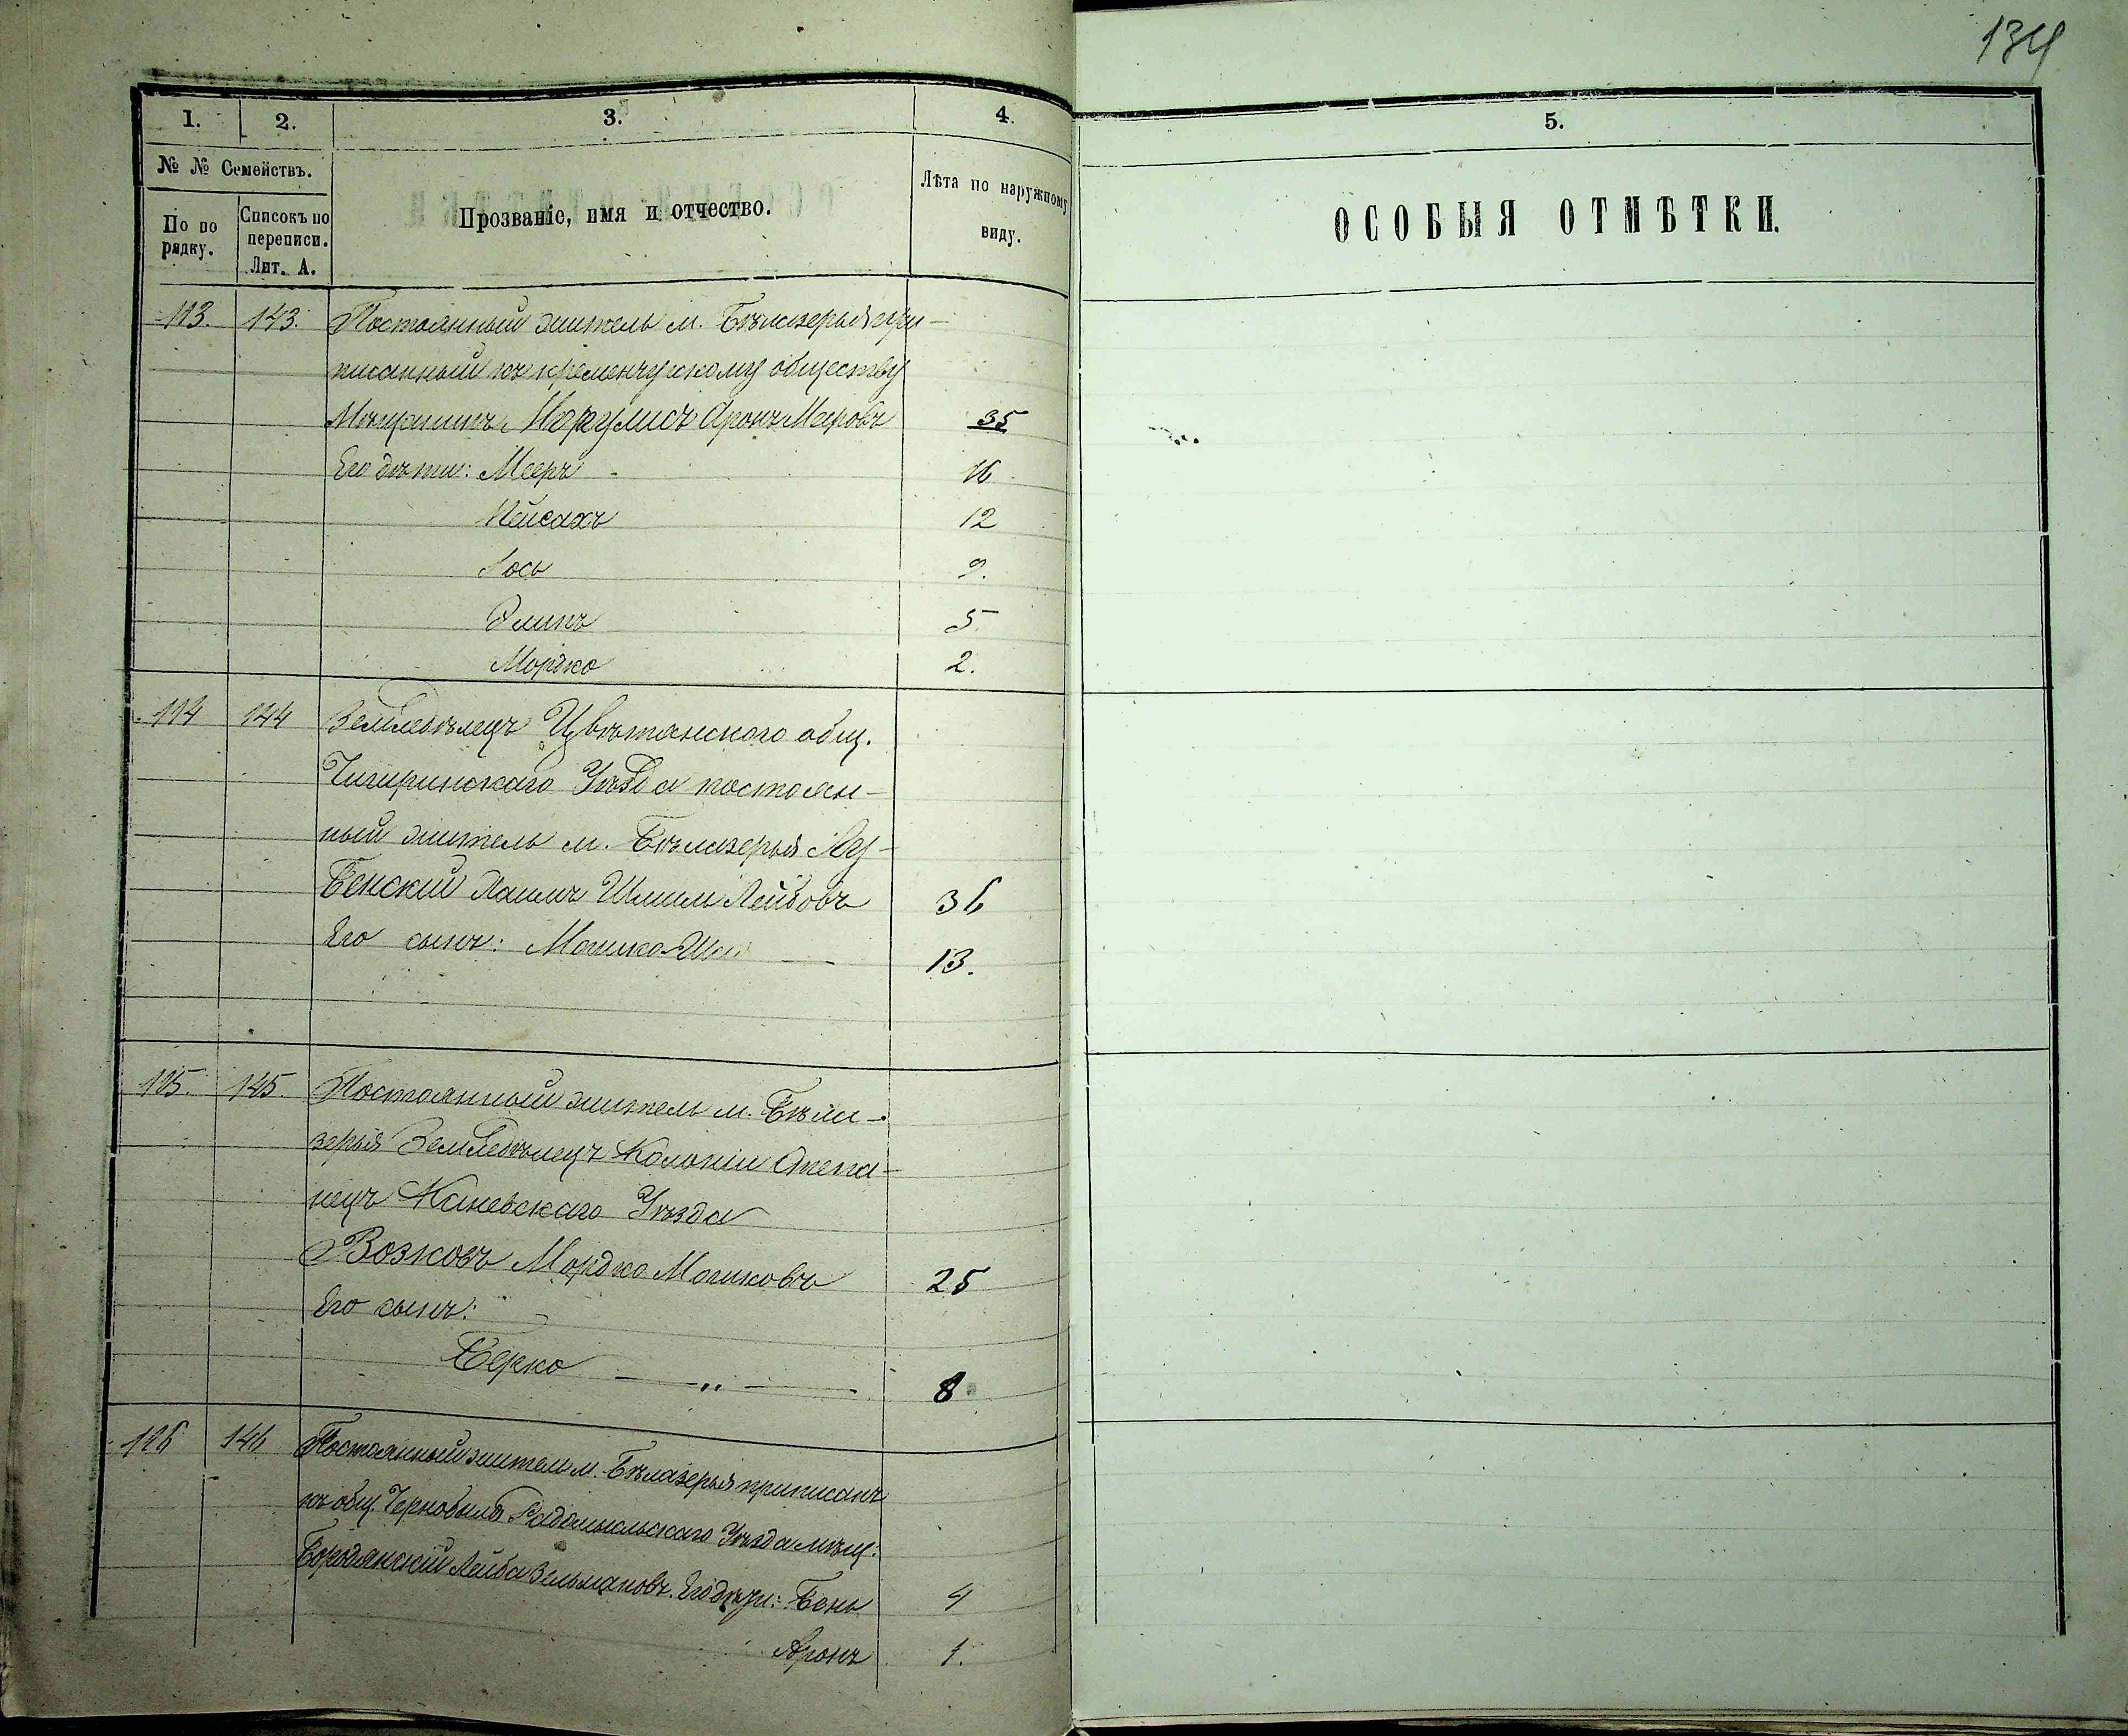 134
1. 2. 3. 4. 5.
№ № Семействъ.
По по рядку.
Списокъ по переписи. Лит. А.
Прозваніе, имя и отчество.
Лѣта по наружному виду.
ОСОБЫЯ ОТМѢТКИ.
113. 143. Постоянный житель м. Бѣлозерья при-
писанный къ кременчугскому обществу
Маргулисъ Аронъ Мееровъ 35
Его дѣти: Мееръ 16
Пейсахъ 12
Іось 9.
5
Мордко 2.
114 144 Земледѣлецъ Цвѣтанского общ.
Чигиринскаго Уѣзда постоян-
ный житель м. Бѣлозерья Лу-
бенский Хаимъ Шлиом Лейбовъ 36
Его сынъ: Мошко 13.
115. 145. Постоянный житель м. Бѣло-
зерья Земледѣлецъ Колоніи Степа-
нецъ Каневскаго Уѣзда
Возковъ Мордко Мошковъ 25
Его сынъ:
Берко — „ — 8
116 146 Постоянный житель м. Бѣлозерья приписанъ
къ общ. Чернобыля Радомысльскаго Уѣзда мѣщ:
Бородянскій Лейба Зельмановъ. Его дѣти: Бень 4
Аронъ 1.